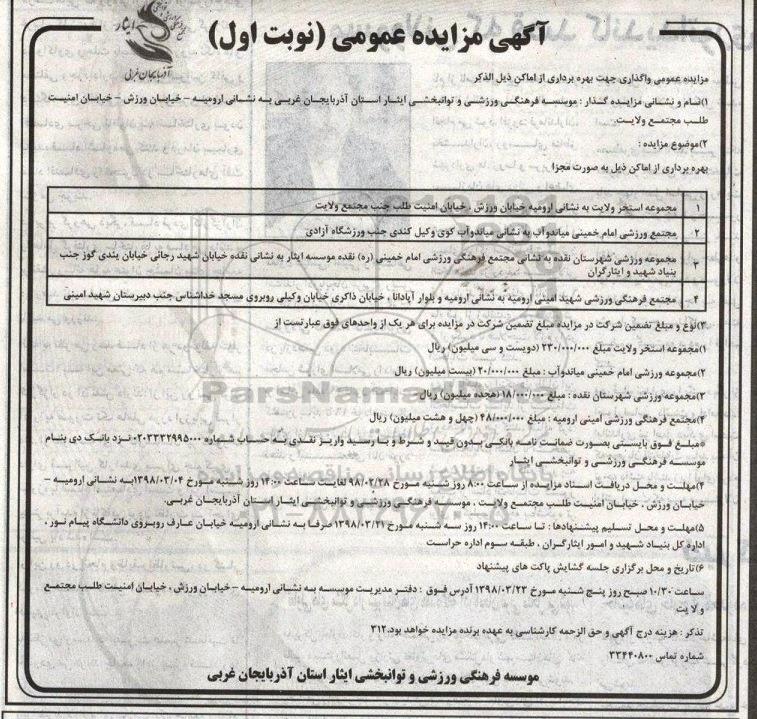 آگهی مزایده عمومی (نوبت اول)
ایثار
آذربایجان غربی
مزایده عمومی واگذاری جهت بهره برداری از اماکن ذیل الذکر
۱)نام و نشانی مزایده گذار : موسسه فرهنگی ورزشی و توانبخشی ایثار استان آذربایجان غربی به نشانی ارومیه – خیابان ورزش – خیابان امنیت
طلب مجتمع ولایت.
۲)موضوع مزایده :
بهره برداری از اماکن ذیل به صورت مجزا
۱ مجموعه استخر ولایت به نشانی ارومیه خیابان ورزش ، خیابان امنیت طلب جنب مجتمع ولایت
۲ مجتمع ورزشی امام خمینی میاندوآب به نشانی میاندوآب کوی وکیل کندی جنب ورزشگاه آزادی
۳ مجموعه ورزشی شهرستان نقده به نشانی مجتمع فرهنگی ورزشی امام خمینی (ره) نقده موسسه ایثار به نشانی نقده خیابان شهید رجائی خیابان یندی گوز جنب
بنیاد شهید و ایثارگران
۴ مجتمع فرهنگی ورزشی شهید امینی ارومیه به نشانی ارومیه و بلوار آپادانا ، خیابان ذاکری خیابان وکیلی روبروی مسجد خداشناس جنب دبیرستان شهید امینی
۳)نوع و مبلغ تضمین شرکت در مزایده مبلغ تضمین شرکت در مزایده برای هر یک از واحدهای فوق عبارتست از
۱)مجموعه استخر ولایت مبلغ ۲۳۰/۰۰۰/۰۰۰ (دویست و سی میلیون) ریال
۲)مجموعه ورزشی امام خمینی میاندوآب : مبلغ ۲۰/۰۰۰/۰۰۰ (بیست میلیون) ریال
۳)مجموعه ورزشی شهرستان نقده : مبلغ ۱۸/۰۰۰/۰۰۰ (هجده میلیون) ریال
۴)مجتمع فرهنگی ورزشی امینی ارومیه : مبلغ ۴۸/۰۰۰/۰۰۰ (چهل و هشت میلیون) ریال
*مبلغ فوق بایستی بصورت ضمانت نامه بانکی بدون قید و شرط و یا رسید واریز نقدی به حساب شماره ۰۲۰۳۳۳۲۹۹۵۰۰۰ نزد بانک دی بنام
موسسه فرهنگی ورزشی و توانبخشی ایثار
۴)مهلت و محل دریافت اسناد مزایده از ساعت ۸:۰۰ روز شنبه مورخ ۹۸/۰۲/۲۸ لغایت ساعت ۱۴:۰۰ روز شنبه مورخ ۱۳۹۸/۰۳/۰۴به نشانی ارومیه –
خیابان ورزش ، خیابان امنیت طلب مجتمع ولایت ، موسسه فرهنگی ورزشی و توانبخشی ایثار استان آذربایجان غربی.
۵)مهلت و محل تسلیم پیشنهادها : تا ساعت ۱۴:۰۰ روز سه شنبه مورخ ۱۳۹۸/۰۳/۲۱ صرفا به نشانی ارومیه خیابان عارف روبروی دانشگاه پیام نور ،
اداره کل بنیاد شهید و امور ایثارگران ، طبقه سوم اداره حراست
۶)تاریخ و محل برگزاری جلسه گشایش پاکت های پیشنهاد
ساعت ۱۰/۳۰ صبح روز پنج شنبه مورخ ۱۳۹۸/۰۳/۲۳ آدرس فوق : دفتر مدیریت موسسه به نشانی ارومیه – خیابان ورزش ، خیابان امنیت طلب مجتمع
ولایت
تذکر : هزینه درج آگهی و حق الزحمه کارشناسی به عهده برنده مزایده خواهد بود.۳۱۲
شماره تماس ۳۳۴۴۰۸۰۰
موسسه فرهنگی ورزشی و توانبخشی ایثار استان آذربایجان غربی